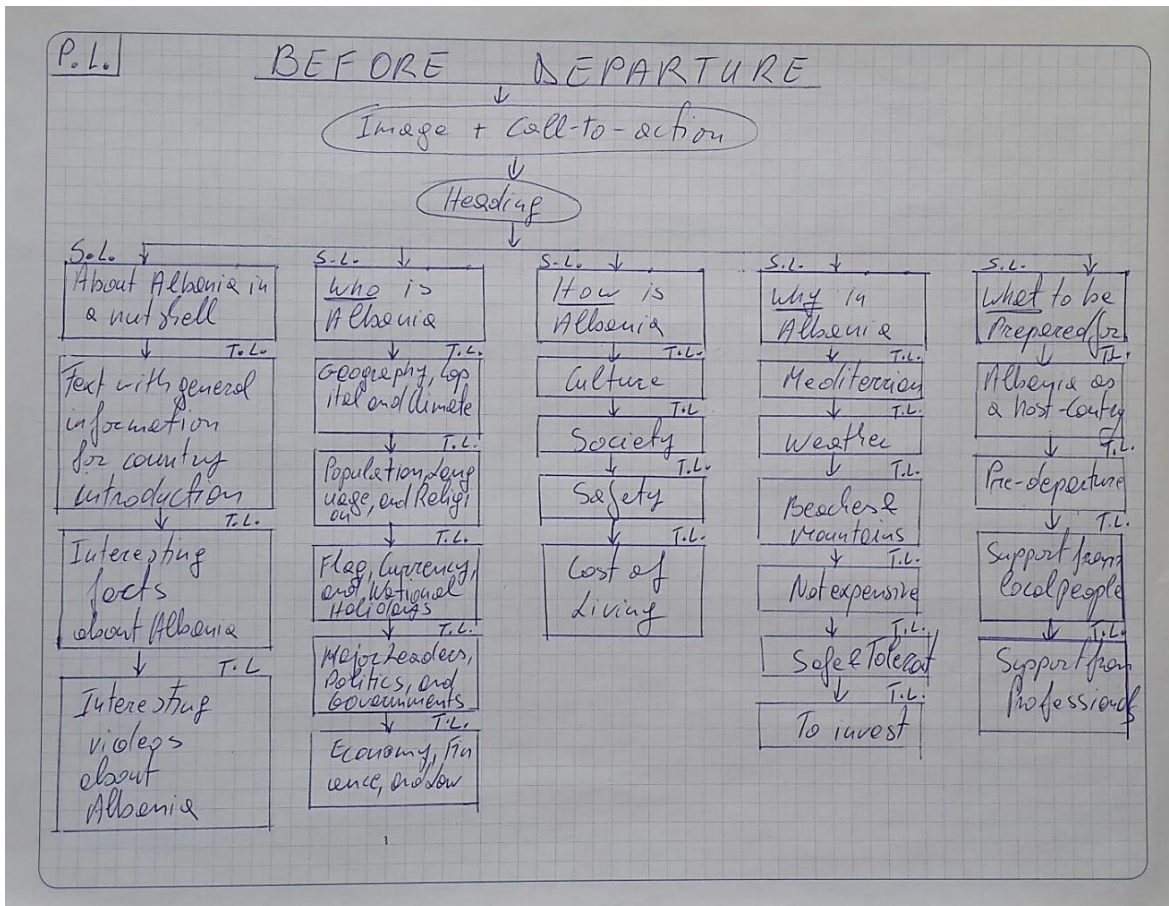 P.L.
BEFORE DEPARTURE
Image + Call-to-action
Heading
S.L.
About Albania in
a nutshell
T.L.
Text with general
information
for country
introduction
T.L.
Interesting
facts
about Albania
T.L
Interesting
videos
about
Albania
S.L.
Who is
Albania
T.L.
Geography, Cap
ital and Climate
T.L.
Population, Lang
uage, and Religi
on
T.L.
Flag, Currency,
and National
Holidays
T.L.
Major Leaders,
Politics, and
Governments
T.L.
Economy, Fin
ance, and Law
S.L.
How is
Albania
T.L.
Culture
T.L
Society
T.L.
Safety
T.L.
Cost of
Living
S.L.
Why in
Albania
T.L.
Mediterrian
T.L.
Weather
T.L.
Beaches &
Mountains
T.L.
Not expensive
T.L.
Safe & Tolerat
T.L.
To invest
S.L.
What to be
Prepared for
T.L.
Albania as
a host-contry
T.L.
Pre-departure
T.L.
Support from
local people
T.L.
Support from
Professionals